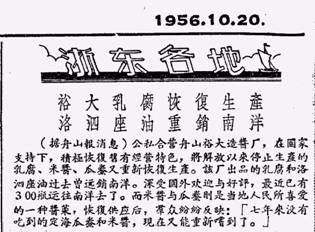 1956.10.20.
浙东各地
裕大乳腐恢復生產
洛泗座油重銷南洋
(据舟山報消息)公私合營舟山裕大造醬厂,在國家
支持下,積極恢復舊有經營特色,將解放以來停止生產的
乳腐、米醬、瓜虀又重新恢復生產。該厂出品的乳腐和洛
泗座油过去曾远銷南洋。深受國外欢迎与好評,最近已有
300瓶运往南洋去了。而米醬与瓜虀則是当地人民所喜愛
的一种醬菜,恢復供应后,羣众紛紛反映:「七年來没有
吃到的定海瓜虀和米醬,現在又能重新嚐到了。」